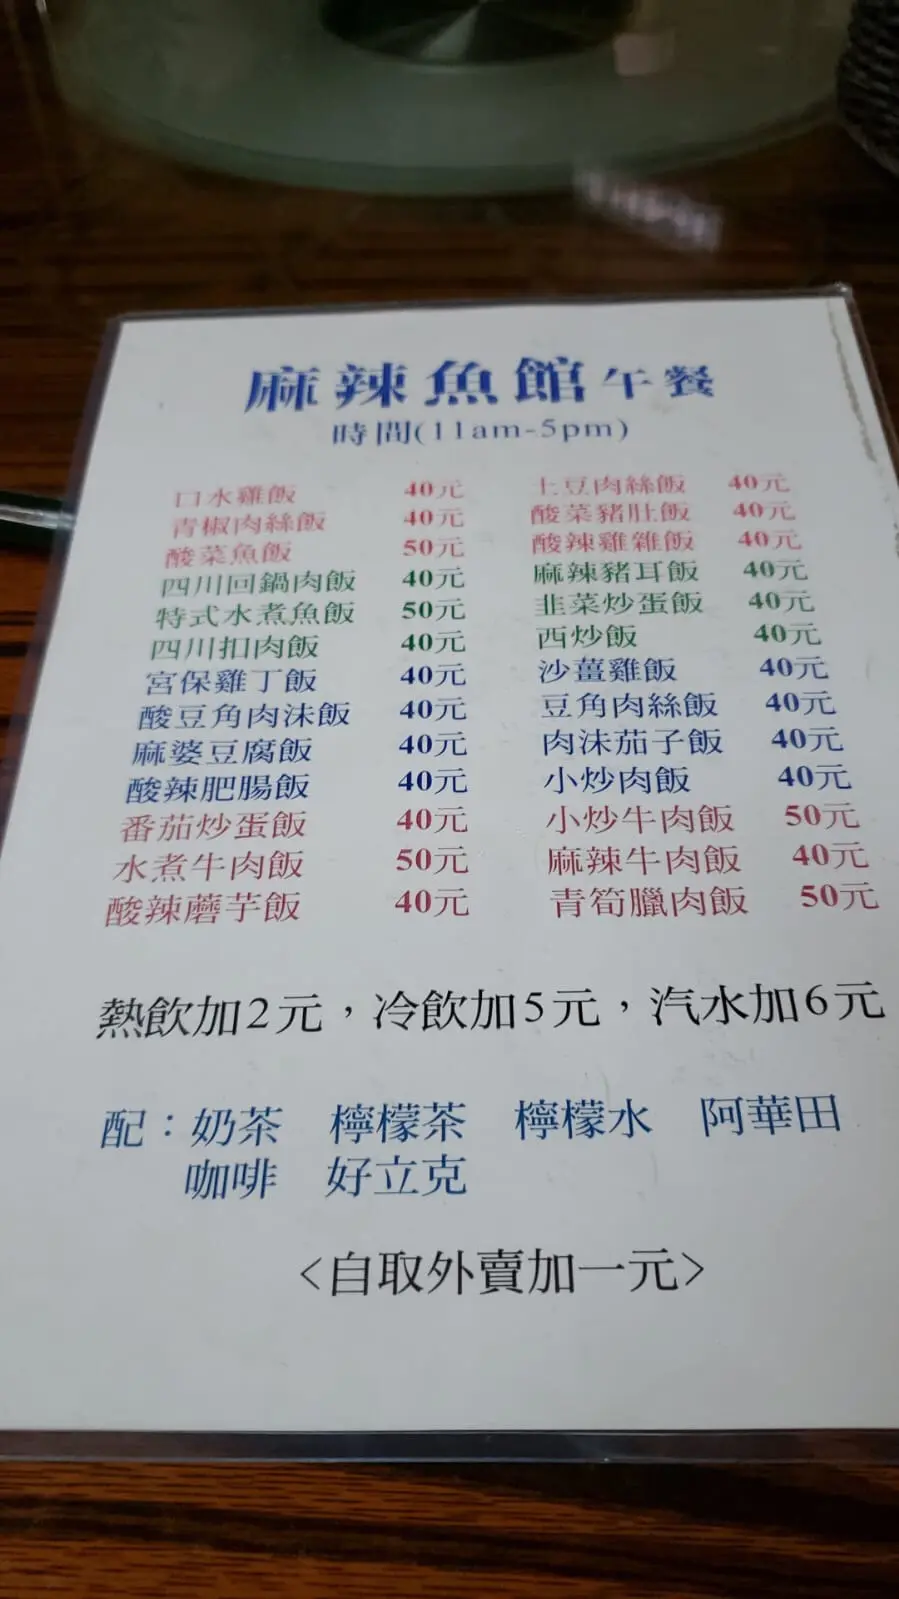 麻辣魚館午餐
時間(11am-5pm)
口水雞飯 40元 土豆肉絲飯 40元
青椒肉絲飯 40元 酸菜豬肚飯 40元
酸菜魚飯 50元 酸辣雞雜飯 40元
四川回鍋肉飯 40元 麻辣豬耳飯 40元
特式水煮魚飯 50元 韭菜炒蛋飯 40元
四川扣肉飯 40元 西炒飯 40元
宮保雞丁飯 40元 沙薑雞飯 40元
酸豆角肉沫飯 40元 豆角肉絲飯 40元
麻婆豆腐飯 40元 肉沫茄子飯 40元
酸辣肥腸飯 40元 小炒肉飯 40元
番茄炒蛋飯 40元 小炒牛肉飯 50元
水煮牛肉飯 50元 麻辣牛肉飯 40元
酸辣蘑芋飯 40元 青筍臘肉飯 50元
熱飲加2元，冷飲加5元，汽水加6元
配：奶茶 檸檬茶 檸檬水 阿華田
咖啡 好立克
<自取外賣加一元>